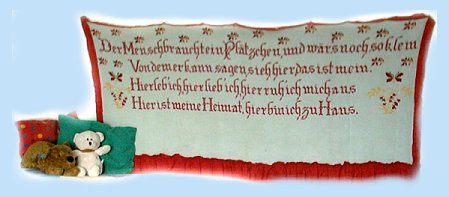 Der Mensch braucht ein Plätzchen, und wärs noch so klein
Von dem er kann sagen, sieh hier das ist mein.
Hier leb ich, hier lieb ich, hier ruh ich mich aus
Hier ist meine Heimat, hier bin ich zu Haus.